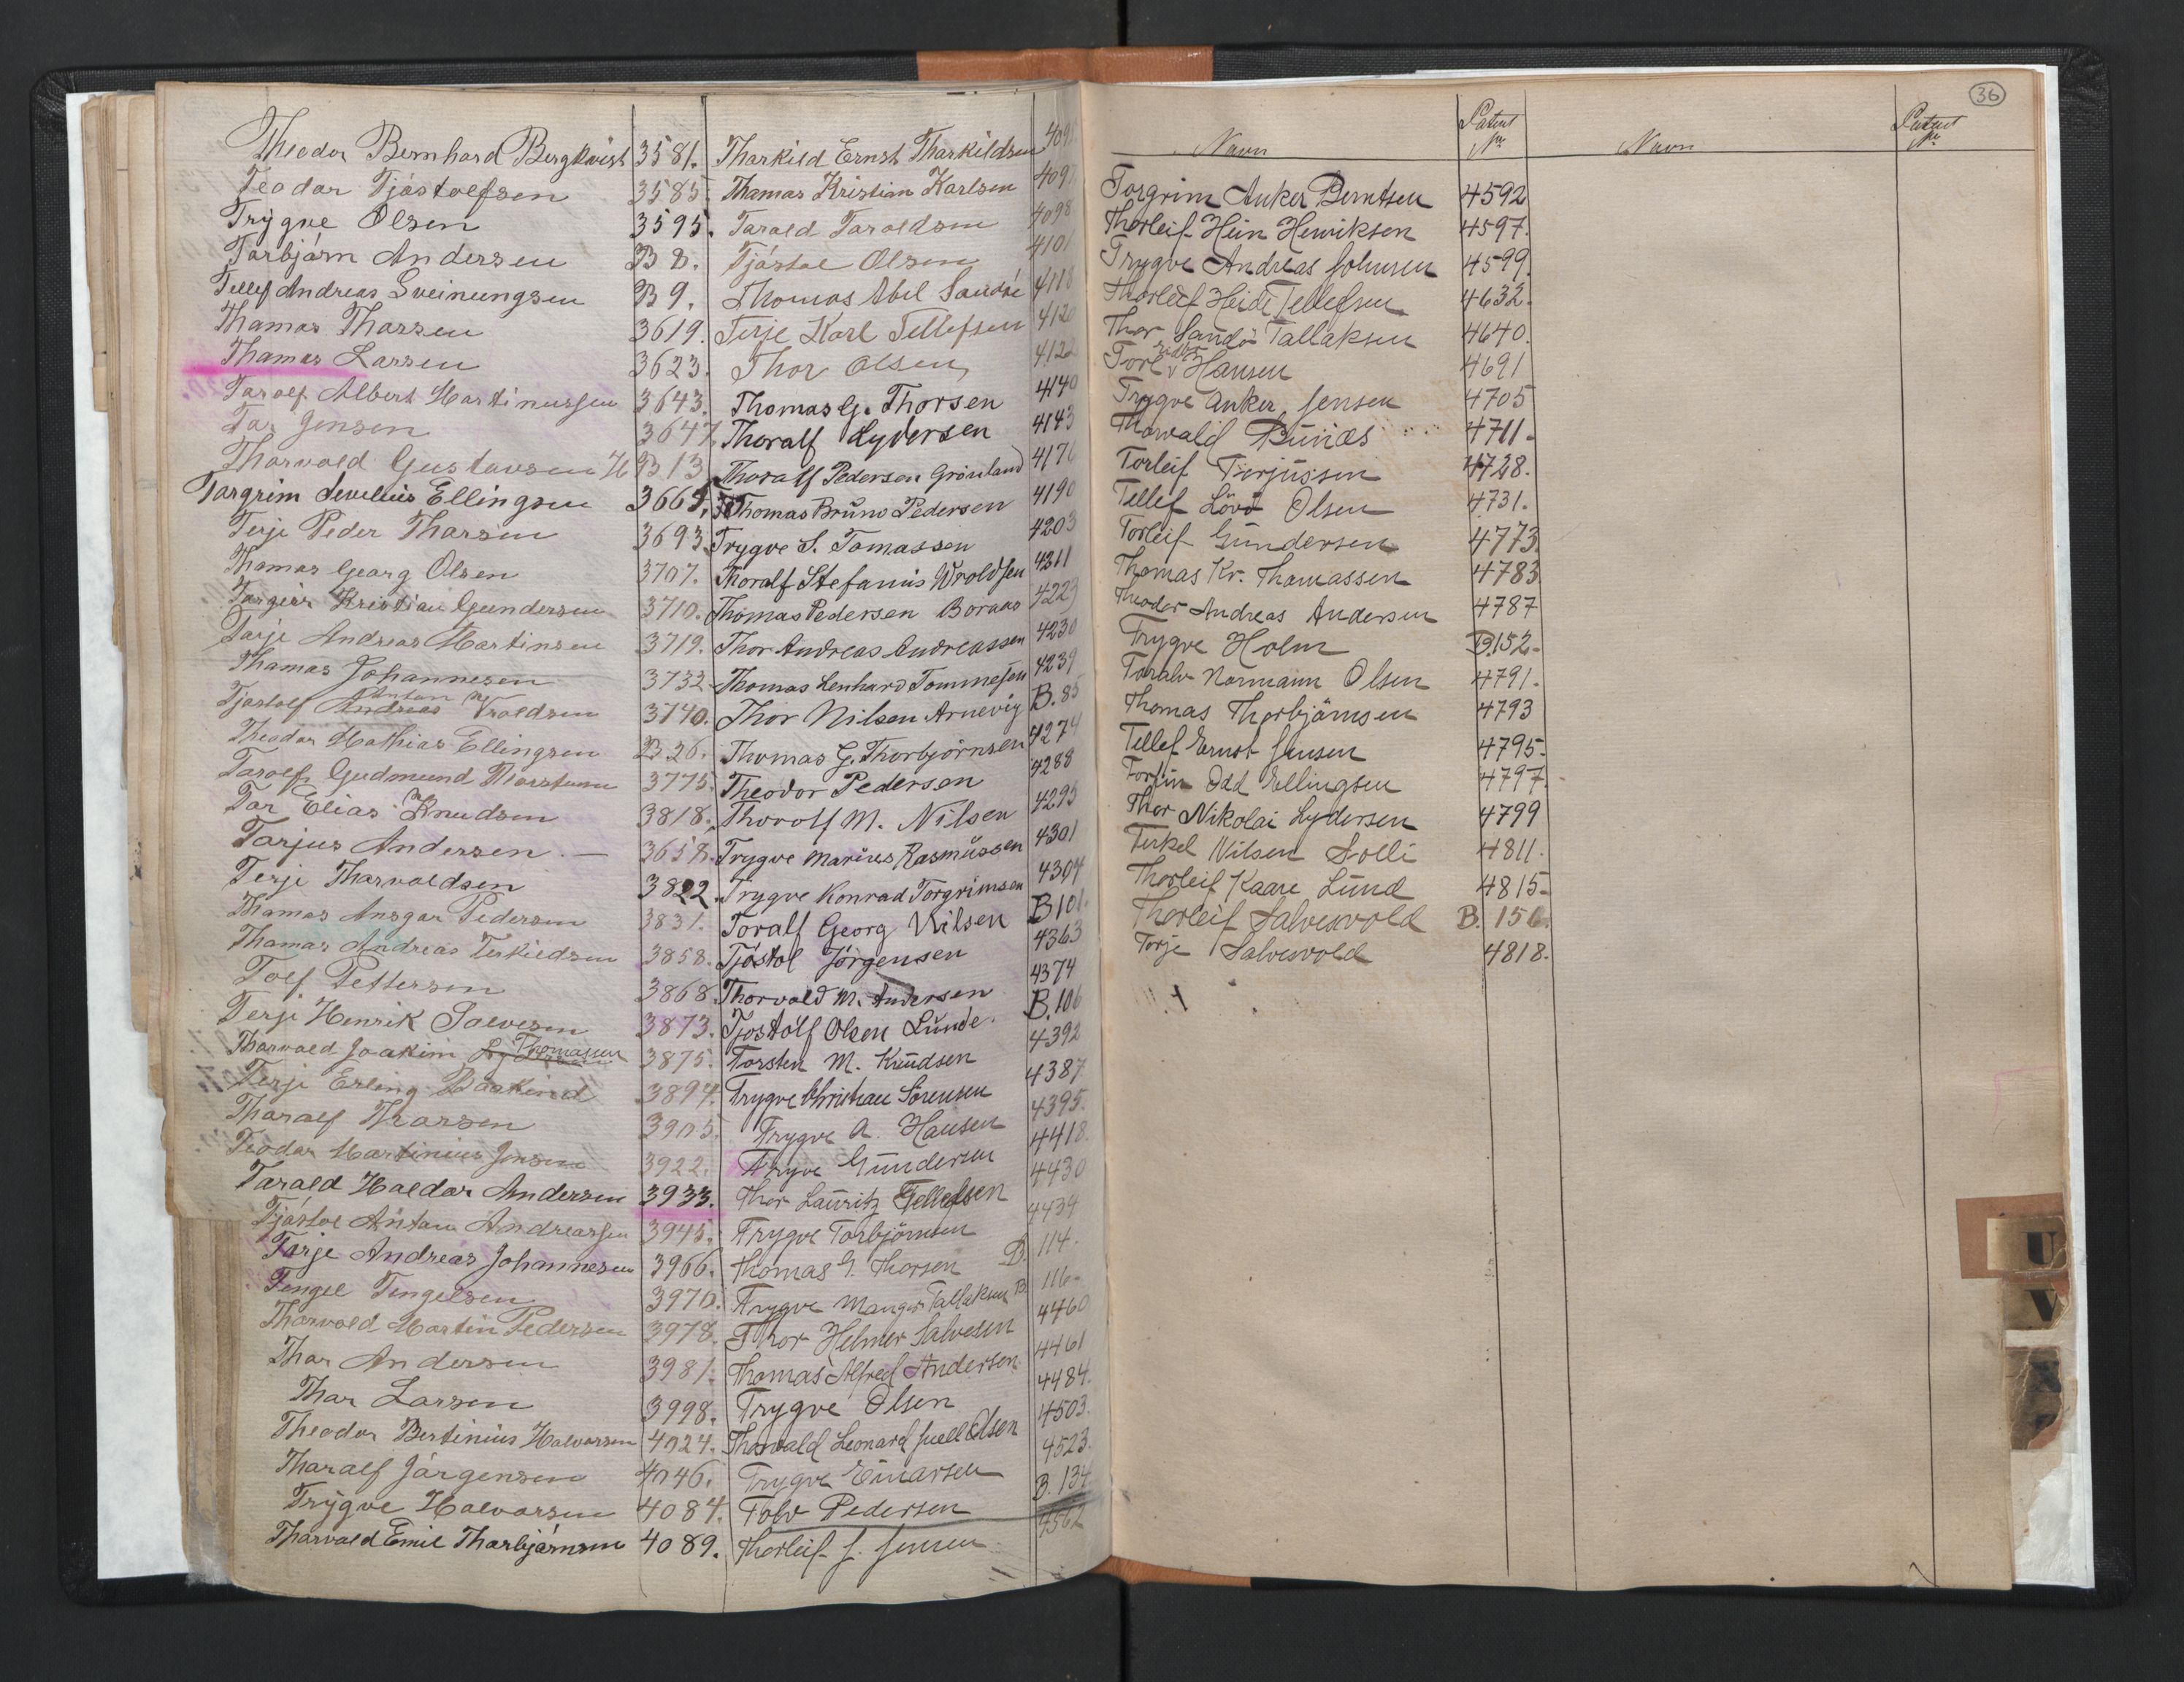 Theodor Bernhard Bergkvist 3581.
Teodor Tjöstolfsen 3585.
Trÿgve Olsen 3595.
Torbjörn Andersen B 8.
Tellef Andreas Sveinungsen B 9.
Thomas Thorsen 3619.
Thomas Larsen 3623.
Torolf Albert Martinussen 3643.
Tor Jensen 3647.
Thorvald Gustavsen H B 13
Torgrim Ellingsen 3665.
Terje Peder Thorsen 3693.
Thomas Georg Olsen 3707.
Torgeir Kristian Gundersen 3710.
Terje Andreas Martinsen 3719.
Thomas Johannesen 3732.
Tjöstolf Andreas Anton Wroldsen 3740.
Theodor Mathias Ellingsen B 26.
Torolf Gudmund 3775.
Tor Elias Knudsen 3818.
Torjus Andersen. — 3658.
Terje Thorvaldsen 3822.
Thomas Ansgar Pedersen 3831.
Thomas Andreas Terkildsen 3858.
Tolf Pettersen 3868.
Terje Henrik Salvesen 3873.
Thorvald Joakim Thomassen 3875.
Terje Erling 3897.
Thoralf Thorsen 3905.
Teodor Martinius Jensen 3922.
Torald Haldor Andersen 3933.
Tjöstol Anton Andreassen 3945.
Terje Andreas Johannesen 3966.
Tengel Tengelsen 3970.
Thorvald Martin Pedersen 3978.
Thor Andersen 3981.
Thor Larsen 3998.
Theodor Bertinius Halvorsen 4024.
Thoralf Jörgensen 4046.
Trÿgve Halvorsen 4084.
Thorvald Emil Thorbjörnsen 4089.
Thorkild Ernst Thorkildsen 409
Thomas Kristian Karlsen 409
Torald Toraldsen 4098
Tjöstol Olsen 4101
Thomas Abel Sandöe 4118
Terje Karl Tellefsen 412
Thor Olsen 412
Thomas G. Thorsen 4140
Thoralf Lydersen 4143
Thoralf Pedersen Grönland 4176
Thomas Bruno Pedersen 4190
Trygve S. Tomassen 4203
Thoralf Stefanus Wroldsen 4211
Thomas Pedersen Boraas 4223
Thor Andreas Andreassen 4230
Thomas Lenhard Tommesen 4239
Thor Nilsen Arnevig B. 85
Thomas G. Thorbjörnsen 4274
Theodor Pedersen 4288
Thorolf M. Nilsen 4295
Trygve Marius Rasmüssen 4301
Trygve Konrad Torgrimsen 4304
Toralf Georg Nilsen B 101.
Tjöstol Jörgensen 4363
Thorvald M. Andersen 4374
Tjostolf Olsen Lunde. B. 106
Torsten M. Knudsen 4392
Trygve Christian Sörensen 4387
Trygve A. Hansen 4395.
Trygve Gundersen 4418.
Thor Lauritz Tellefsen 4430
Trygve Torbjörnsen 4434
Thomas G. Thorsen B. 114.
Trygve Tallaksen B. 116
Thor Helmer Salvesen 4460
Thomas Alfred Andersen. 4461
Trygve Olsen 4484.
Thorvald Leonard Juell Olsen 4503.
Trygve Einarsen 4523.
Tolv Pedersen B. 134
Thorleif J. Jensen 4562
36
Navn Patent Nr Navn Patent Nr
Torgrim Anker Berntsen 4592
Thorleif Hein Henriksen 4597.
Trygve Andreas Johnsen 4599.
Thorleif Heide Tellefsen 4632.
Thor Sandö Tallaksen 4640.
Hansen 4691
Trygve Anker Jensen 4705
Thorvald Bünæs 4711.
Torleif Terjussen 4728.
Tellef Lövd Olsen 4731.
Torleif Gundersen 4773.
Thomas Kr. Thomassen 4783
Theodor Andreas Andersen 4787
Trygve Holm B.152.
Toralv Normann Olsen 4791.
Thomas Thorbjörnsen 4793
Tellef Ernst Jensen 4795.
Torfin Odd Ellingsen 4797.
Thor Nikolai Lydersen 4799
Terkel Nilsen Solli 4811.
Thorleif Kaare Lund 4815.
Thorleif Salvesvold B. 156.
Terje Salvesvold 4818.
U
V